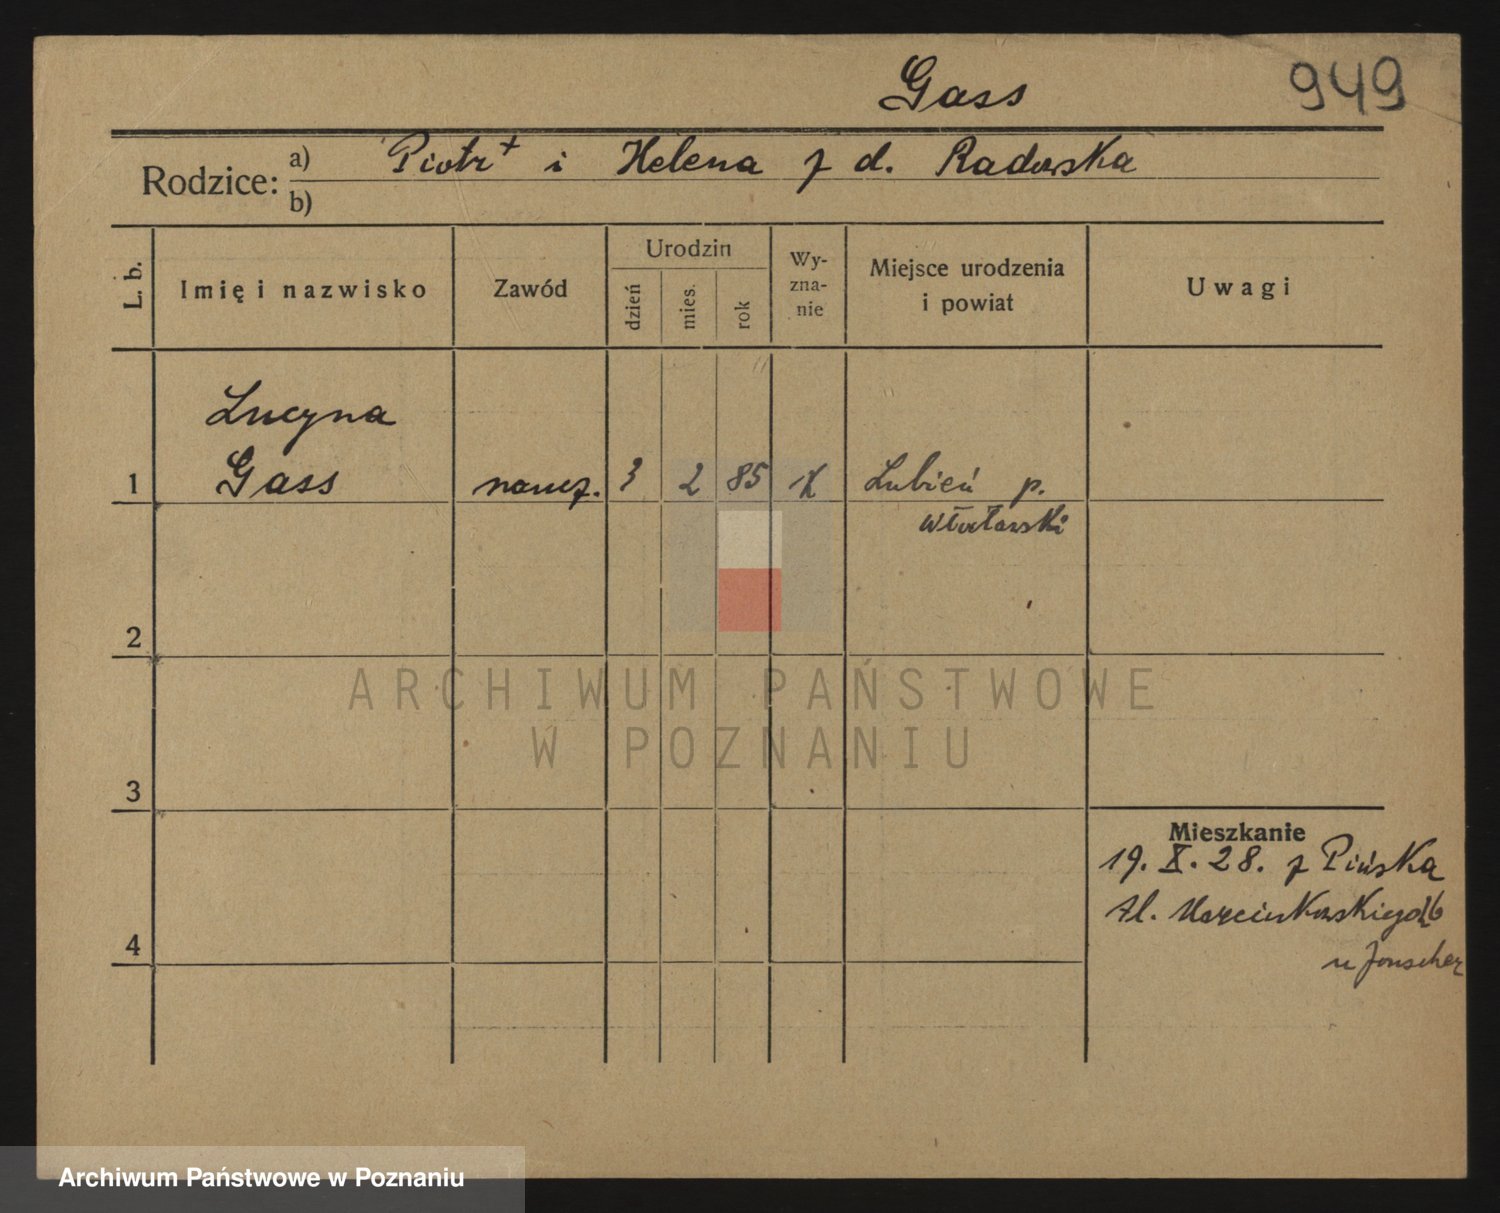 Gass
949
Rodzice:
a) Piotr + i Helena z d. Radowska
b)
L. b.
Imię i nazwisko
Zawód
Urodzin
dzień
mies.
rok
Wy-
zna-
nie
Miejsce urodzenia
i powiat
Uwagi
Lucyna
1 Gass naucz. 3 2 85 Lubień p.
włocławski
2
ARCHIWUM PAŃSTWOWE
W POZNANIU
3
Mieszkanie
19. X. 28. z Pińska
Al. Marcinkowskiego
u Jonscher
4
Archiwum Państwowe w Poznaniu